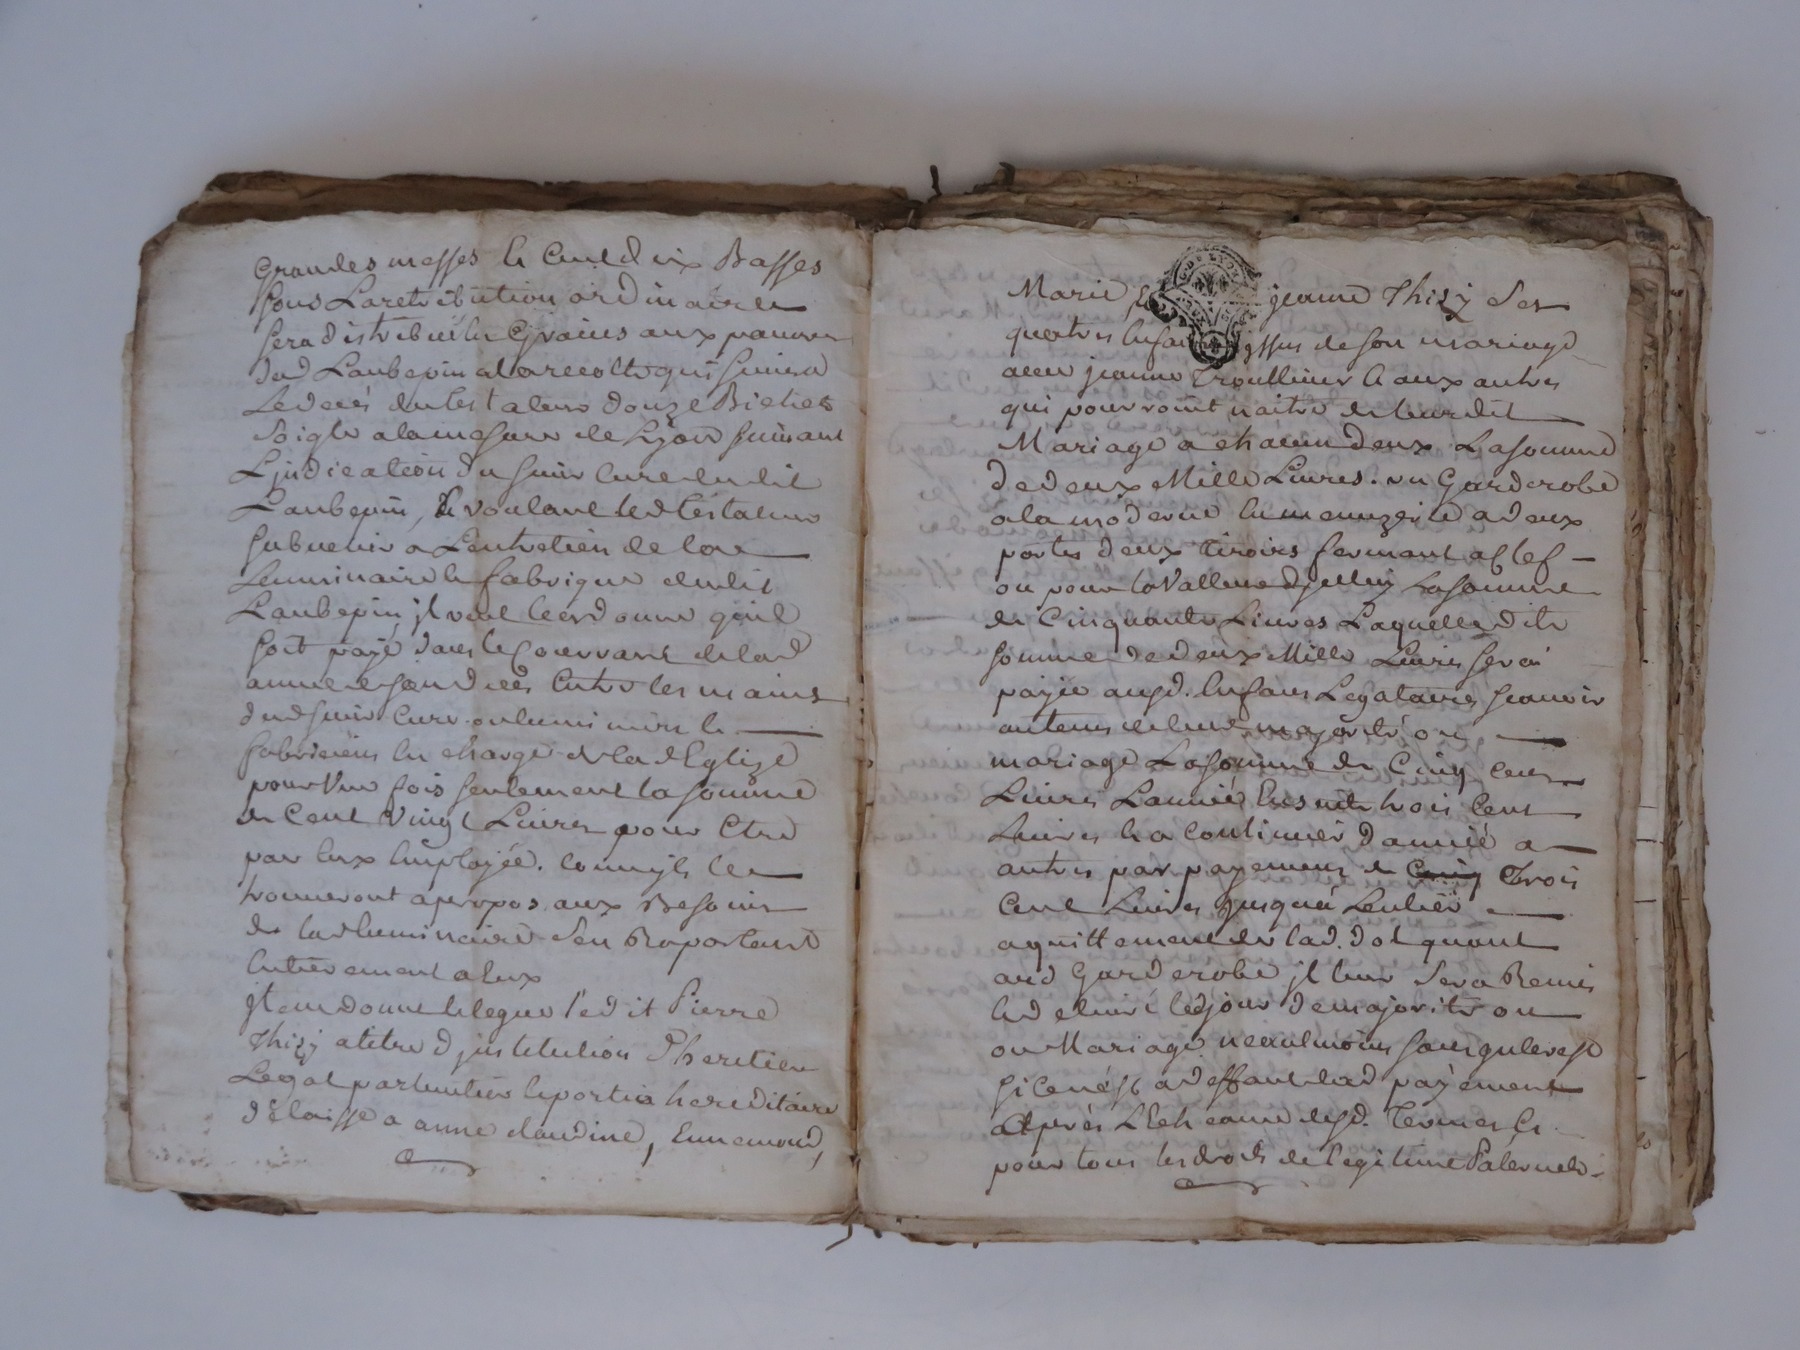 Grandes messes & Cent dix Basses
sous La retribution ordinaire
sera distribué en Grains aux pauvres
dud Laubepin a la recolte qui suivra
Le décés du testateur douze Bichets
Soigle a la mesure de Lyon suivant
L'jndication du sieur Curé dudit
Laubepin, & voulant led téstateur
subvenir a L'entretien de la
Luminaire & fabrique dudit
Laubepin jl veut & ordonne quil
soit payé dans le Courrant de lad
année de son decés Entre les mains
dud sieur Curé ou luminiers &
fabriciens en charge de lad Eglize
pour Une fois seulement la somme
de Cent Vingt Livres pour Etre
par Eux Employée. comm'jls le
trouveront apropos aux Besoins
de lad luminaire S'en Raportant
Entierement a Eux
jtem donne & legue ledit Pierre
Thizy a titre d'jnstitution d'heretier
Legat particulier & portion hereditaire
délaisse a anne claudine, Ennemond,
Marie jeanne Thizy Ses
quatres Enfans jssus de son mariage
avec jeanne Troullieur & aux autres
qui pourront naitre de leur dit
Mariage a chacun d'eux La somme
de deux Mille Livres. un Garderobe
a la moderne En menuzerie a deux
portes deux Tiroirs fermant a Clef
ou pour la Valleur d'jcelluy La somme
de Cinquante Livres Laquelle dite
somme de deux Mille Livres sera
payée ausd. Enfans Legataires sçavoir
au tems de leur majorité ou
mariage La somme de Cinq cent
Livres L'année Ensuite trois Cent
Livres & a Continuer d'année a
autres par payement de Cinq Trois
Cent Livres jusqu'à L'entier
aquittement de lad. dot quant
aud Garderobe jl leur Sera Remis
& delivré led jour de majorité ou
ou Mariage neantmoins sans jnterest
si ce n'est a deffaut dud payement
Après L'Echeance desd. Termes &
pour tous les droits de legitime Paternels